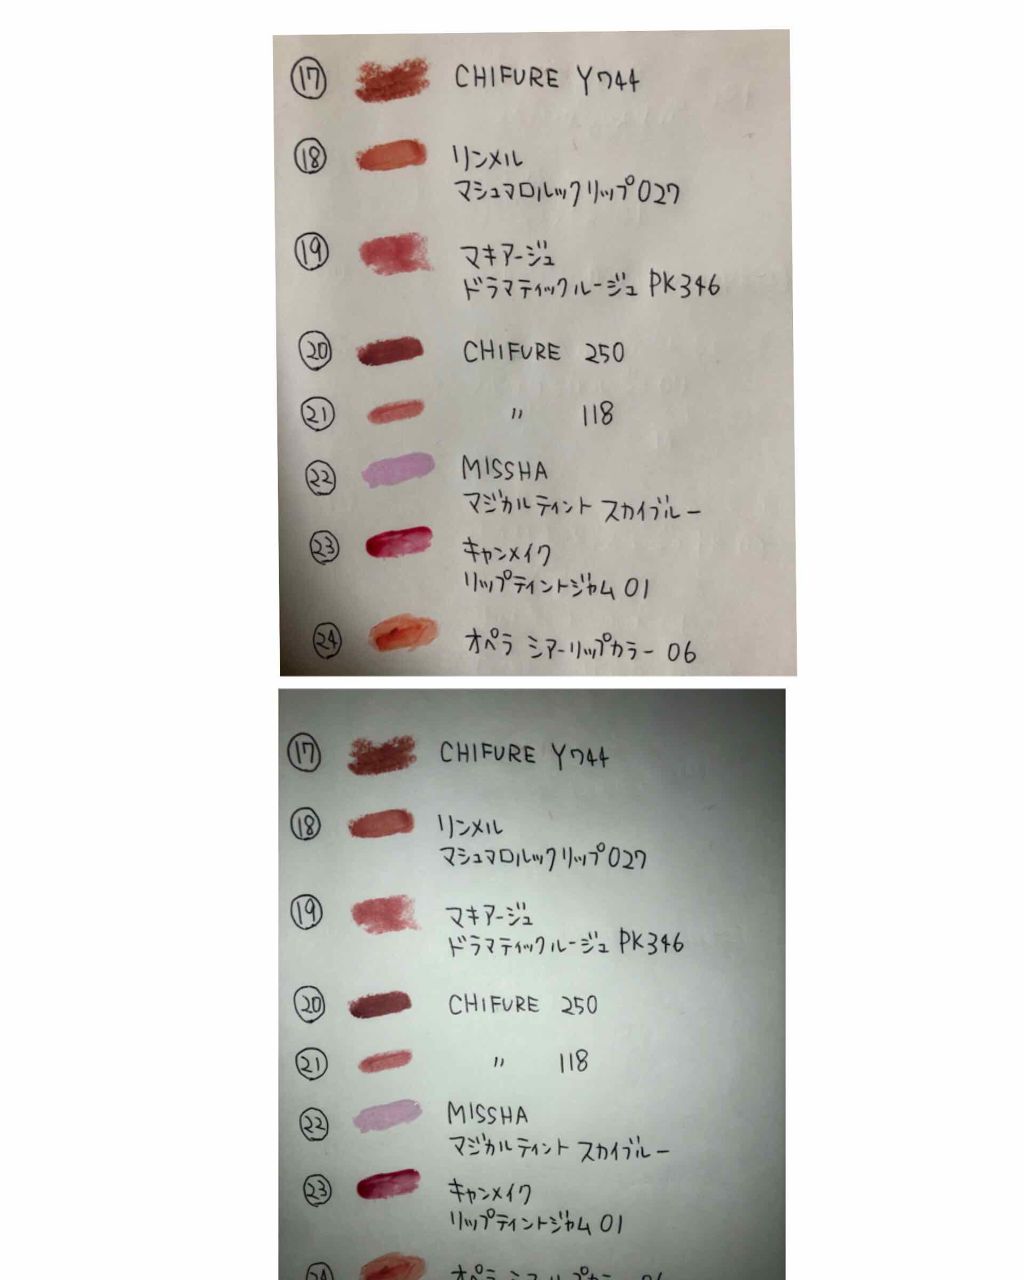 ⑰ CHIFURE Y744
⑱ リンメル
マシュマロルックリップ027
⑲ マキアージュ
ドラマティックルージュ PK346
⑳ CHIFURE 250
㉑ 〃 118
㉒ MISSHA
マジカルティント スカイブルー
㉓ キャンメイク
リップティントジャム 01
㉔ オペラ シアーリップカラー 06
⑰ CHIFURE Y744
⑱ リンメル
マシュマロルックリップ027
⑲ マキアージュ
ドラマティックルージュ PK346
⑳ CHIFURE 250
㉑ 〃 118
㉒ MISSHA
マジカルティント スカイブルー
㉓ キャンメイク
リップティントジャム 01